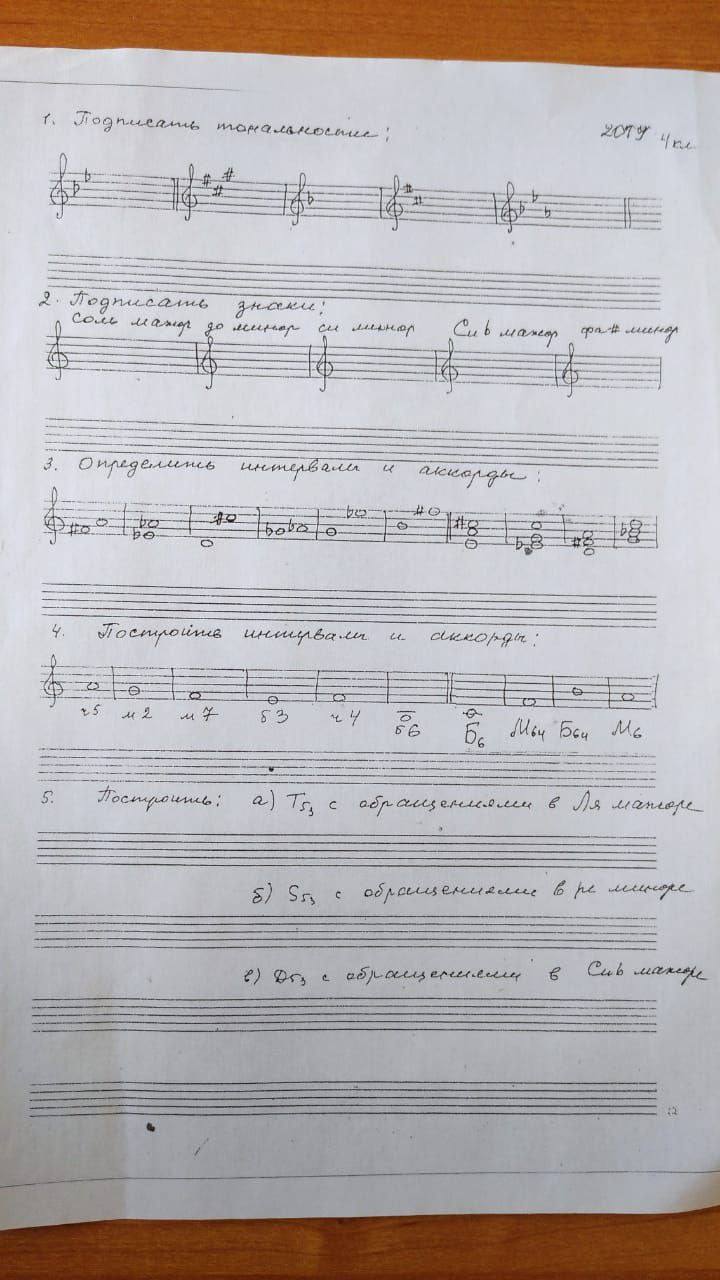 1. Подписать тональности:
2019 4 кл
2. Подписать знаки:
соль мажор до минор си минор Сиb мажор фа# минор
3. Определить интервалы и аккорды:
4. Постройте интервалы и аккорды:
ч5 м2 м7 б3 ч4 б6 Б6 М64 Б64 М6
5. Построить: а) Т53 с обращениями в Ля мажоре
б) S53 с обращениями в ре миноре
в) D53 с обращениями в Сиb мажоре